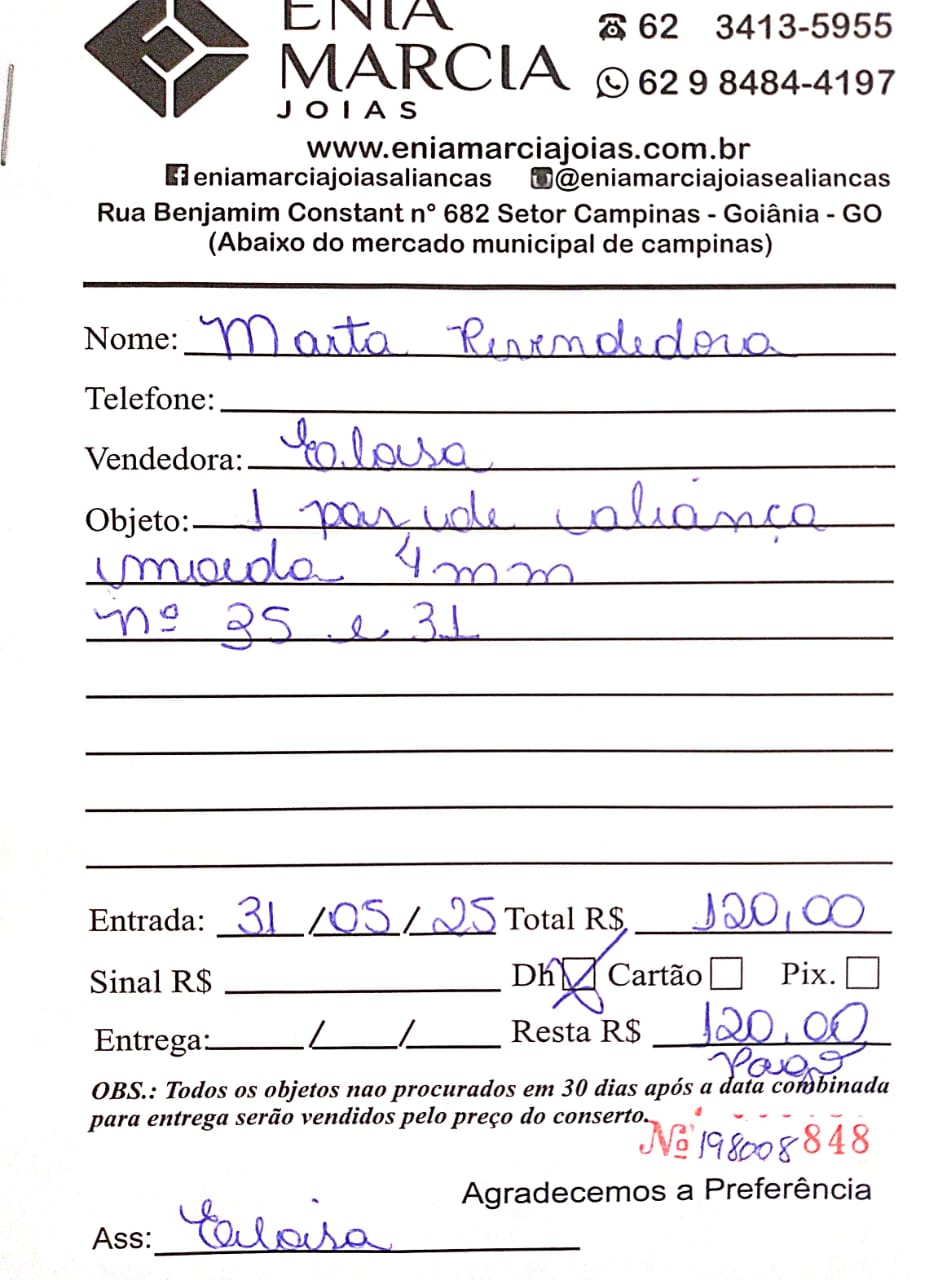 ENIA
MARCIA
JOIAS
62 3413-5955
62 9 8484-4197
www.eniamarciajoias.com.br
eniamarciajoiasaliancas @eniamarciajoiasealiancas
Rua Benjamim Constant n° 682 Setor Campinas - Goiânia - GO
(Abaixo do mercado municipal de campinas)
Nome: Marta Revendedora
Telefone:
Vendedora: Eloisa
Objeto: 1 par de aliança
4mm
nº 35 e 31
Entrada: 31/05/25 Total R$ 120,00
Sinal R$ Dh Cartão Pix.
Entrega: / / Resta R$ 120,00
Pago
OBS.: Todos os objetos nao procurados em 30 dias após a data combinada
para entrega serão vendidos pelo preço do conserto.
Nº 198008 848
Agradecemos a Preferência
Ass: Eloisa